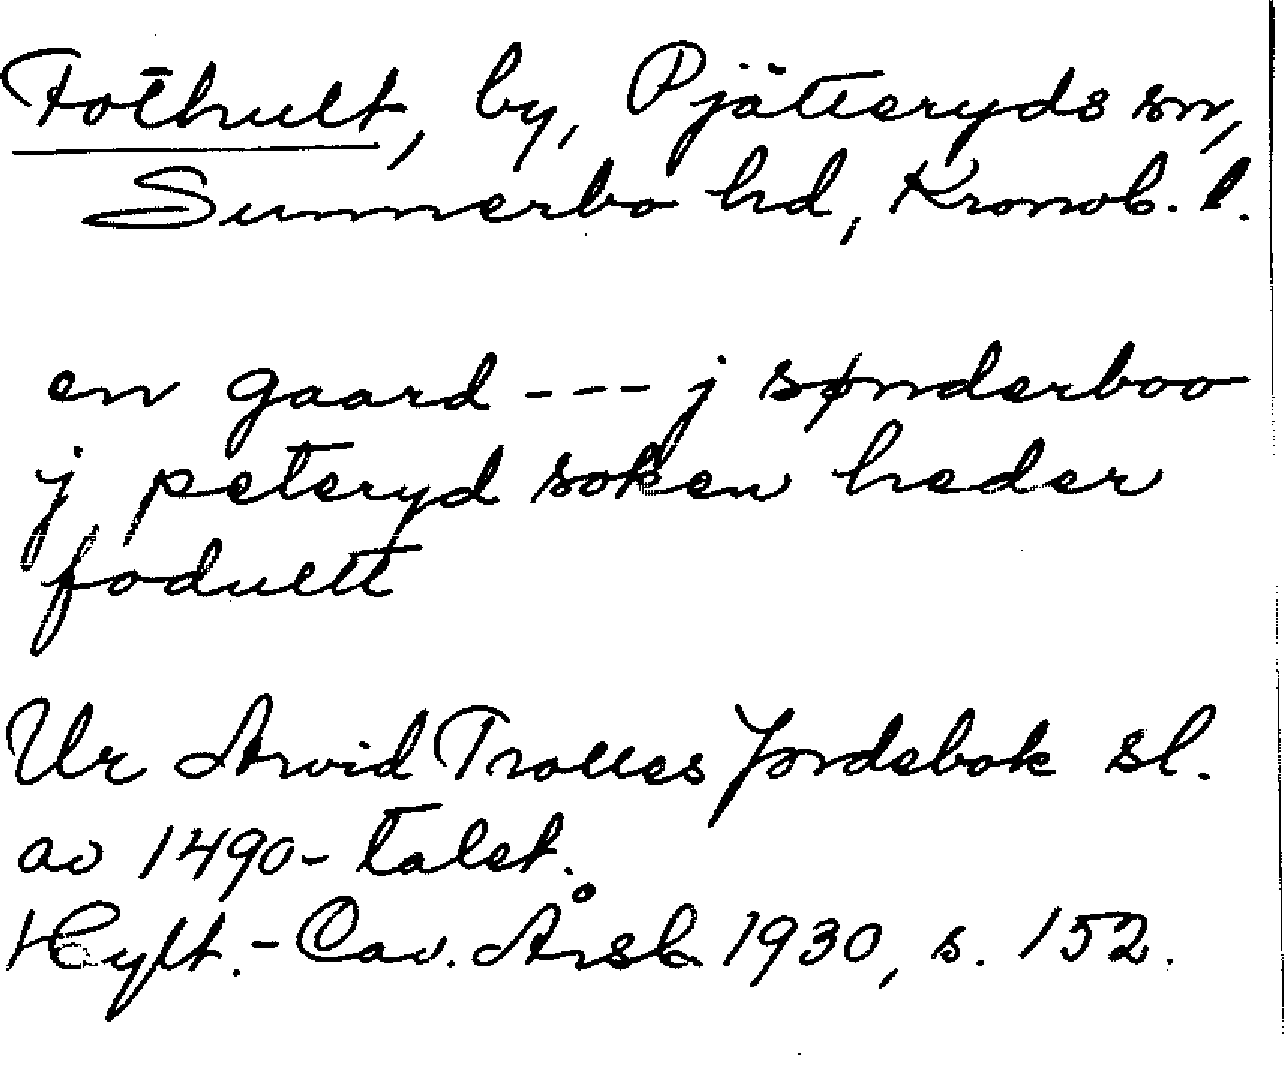 Fothult, by, Pjätteryds sn,
Sunnerbo hd, Kronob. l.
en gaard --- j sønderboo
j peteryd soken heder
fodultt
Ur Arvid Trolles Jordebok sl.
av 1490-talet.
Hylt.-Cav. Årsb 1930, s. 152.